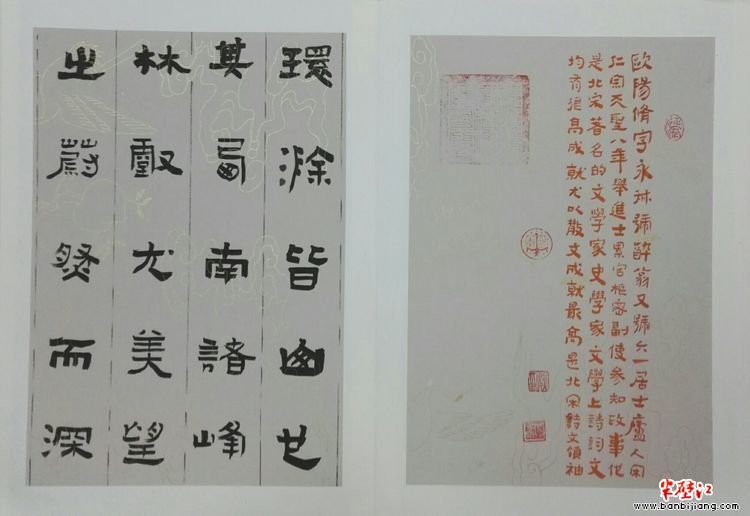 歐陽脩字永叔號醉翁又號六一居士廬人宋
仁宗天聖八年舉進士累官枢密副使参知政事他
是北宋著名的文學家史學家文學上詩詞文
均有很高成就尤以散文成就最高是北宋詩文領袖
環滁皆山也
其西南諸峰
林壑尤美望
之蔚然而深
半壁江
www.banbijiang.com